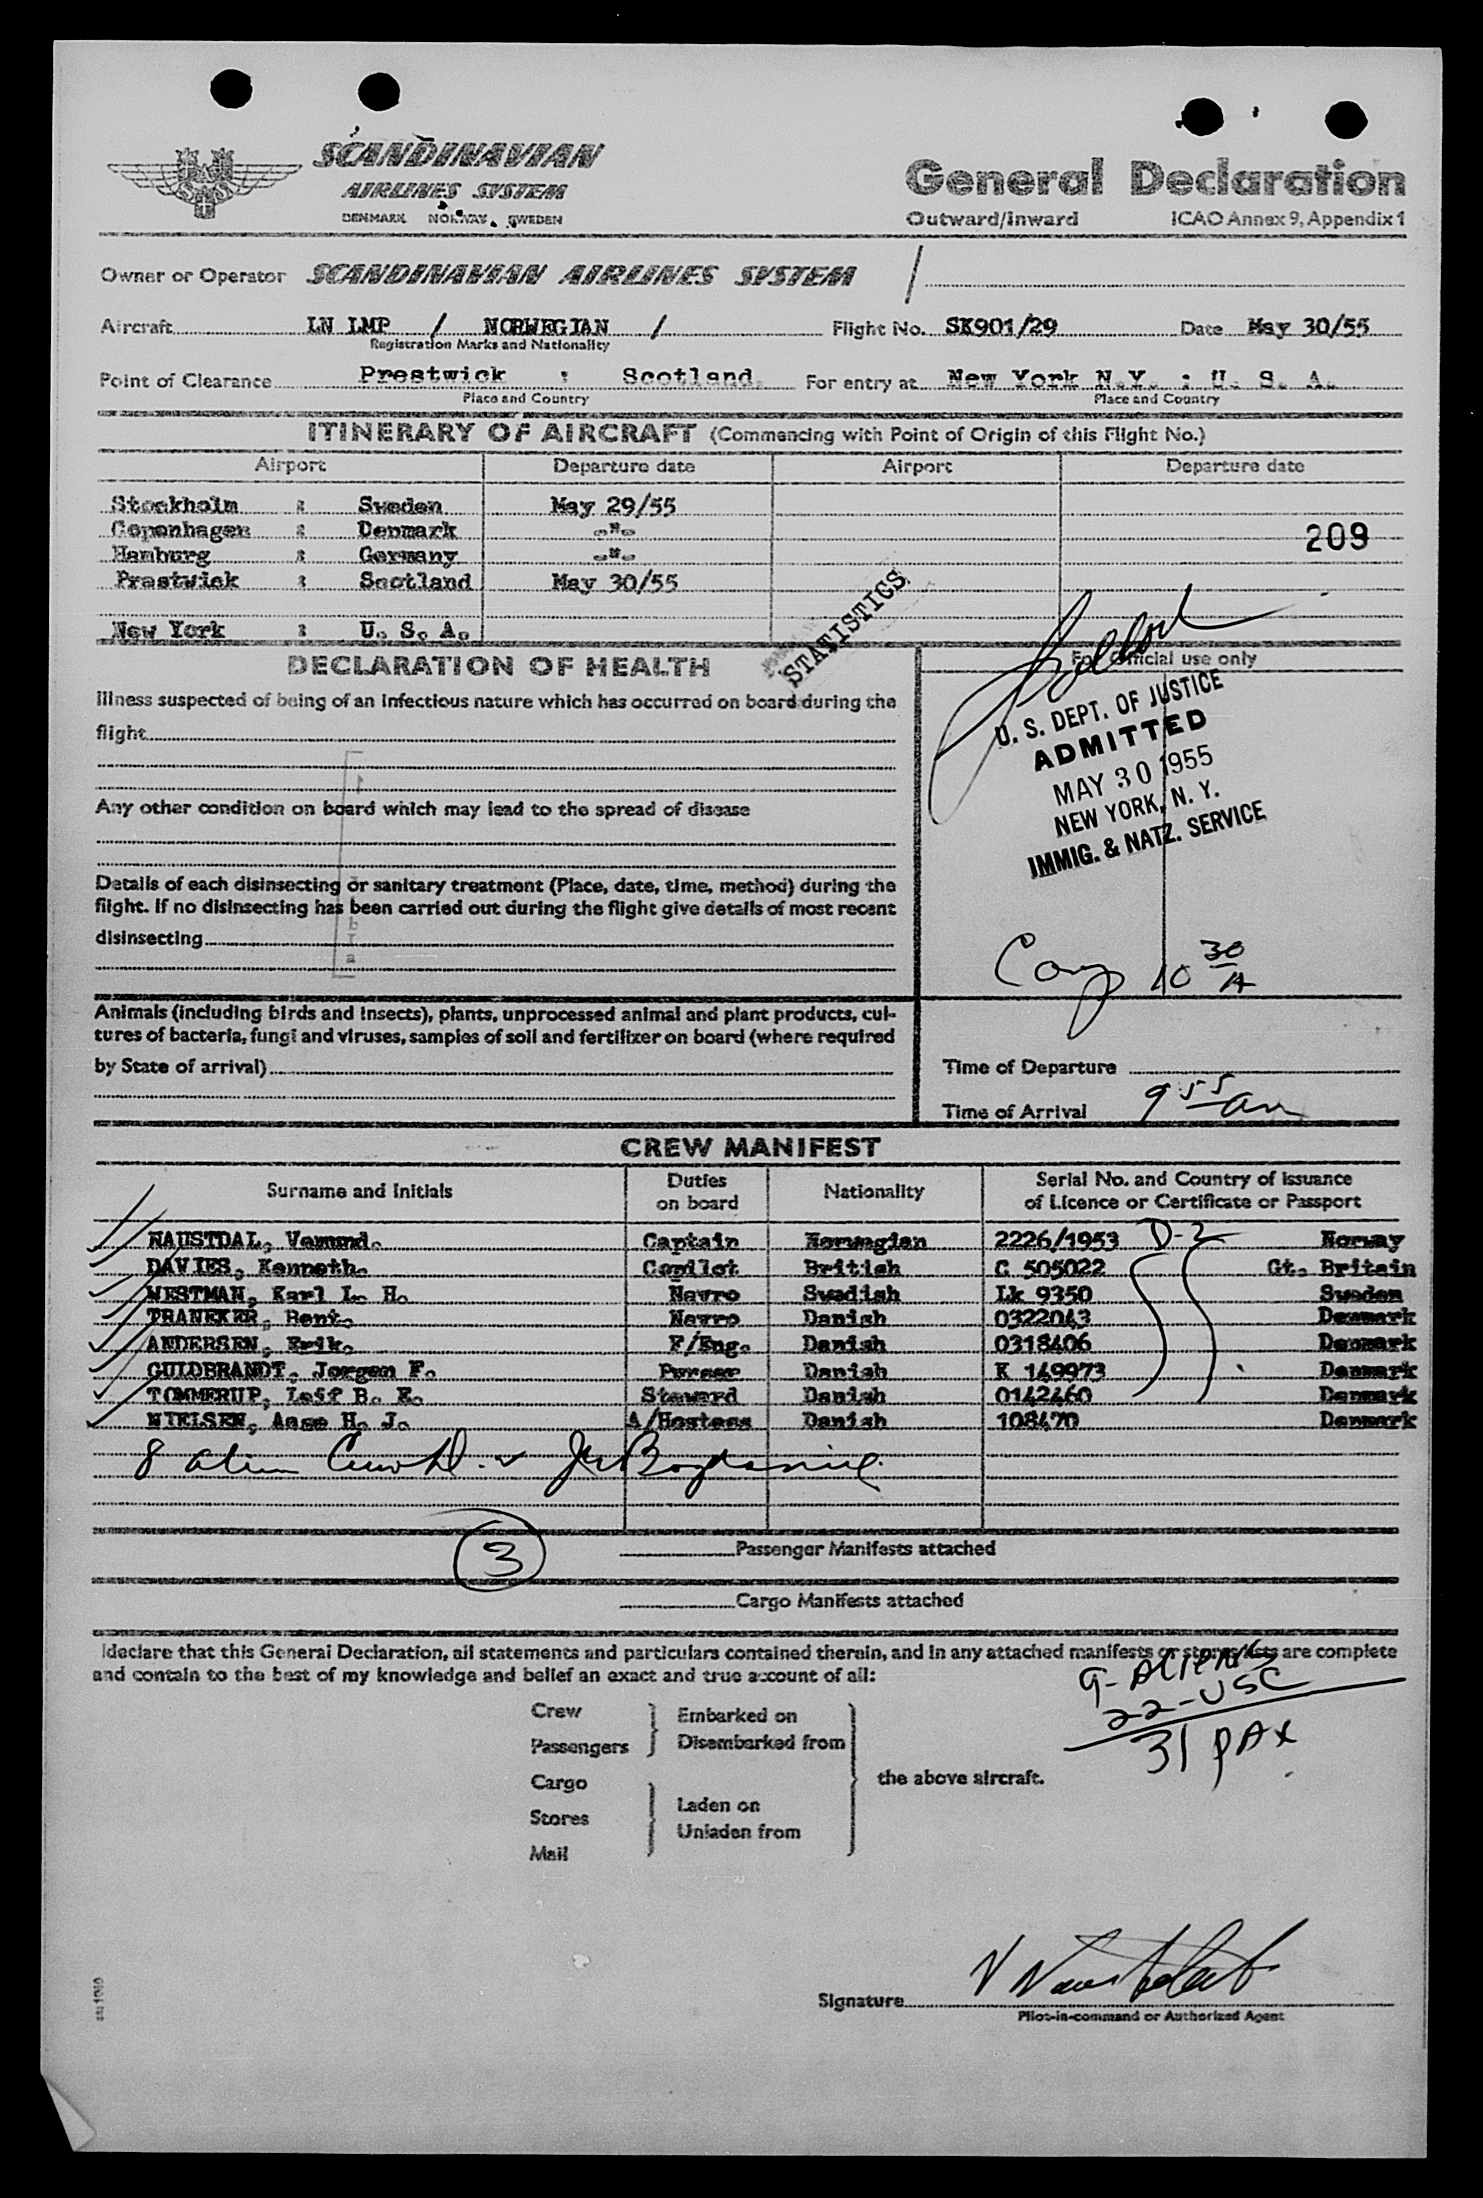 SCANDINAVIAN
AIRLINES SYSTEM
DENMARK NORWAY SWEDEN
General Declaration
Outward/Inward ICAO Annex 9, Appendix 1
Owner or Operator SCANDINAVIAN AIRLINES SYSTEM /
Aircraft LN LMP / NORWEGIAN / Flight No. SK901/29 Date May 30/55
Registration Marks and Nationality
Point of Clearance Prestwick : Scotland. For entry at New York N.Y. : U. S. A.
Place and Country Place and Country
ITINERARY OF AIRCRAFT (Commencing with Point of Origin of this Flight No.)
Airport Departure date Airport Departure date
Stockholm : Sweden May 29/55
Copenhagen : Denmark -"-
209
Hamburg : Germany -"-
Prestwick : Scotland May 30/55
STATISTICS
New York : U. S. A.
DECLARATION OF HEALTH
For Official use only
Illness suspected of being of an infectious nature which has occurred on board during the
flight
U. S. DEPT. OF JUSTICE
ADMITTED
MAY 30 1955
NEW YORK, N. Y.
IMMIG. & NATZ. SERVICE
Any other condition on board which may lead to the spread of disease
Details of each disinsecting or sanitary treatment (Place, date, time, method) during the
flight. If no disinsecting has been carried out during the flight give details of most recent
disinsecting
10 30 A
Animals (including birds and insects), plants, unprocessed animal and plant products, cul-
tures of bacteria, fungi and viruses, samples of soil and fertilizer on board (where required
by State of arrival)
Time of Departure
Time of Arrival 9 55 am
CREW MANIFEST
Surname and Initials Duties on board Nationality Serial No. and Country of issuance of Licence or Certificate or Passport
NAUSTDAL, Vemund. Captain Norwegian 2226/1953 D-2 Norway
DAVIES, Kenneth. Copilot British C 505022 Gt. Britain
WESTMAN, Karl L. H. Navro Swedish Lk 9350 Sweden
TRANEKER, Bent. Navro Danish 0322043 Denmark
ANDERSEN, Erik. F/Eng. Danish 0318406 Denmark
GULDBRANDT, Jorgen F. Purser Danish K 149973 Denmark
TOMMERUP, Leif B. E. Steward Danish 0142460 Denmark
NIELSEN, Aase H. J. A/Hostess Danish 108470 Denmark
8 alien
3
Passenger Manifests attached
Cargo Manifests attached
I declare that this General Declaration, all statements and particulars contained therein, and in any attached manifests or stores lists are complete
and contain to the best of my knowledge and belief an exact and true account of all:
9-ALIENS
22-USC
31 PAX
Crew
Passengers
Embarked on
Disembarked from
Cargo
Stores
Mail
Laden on
Unladen from
the above aircraft.
Signature
Pilot-in-command or Authorized Agent